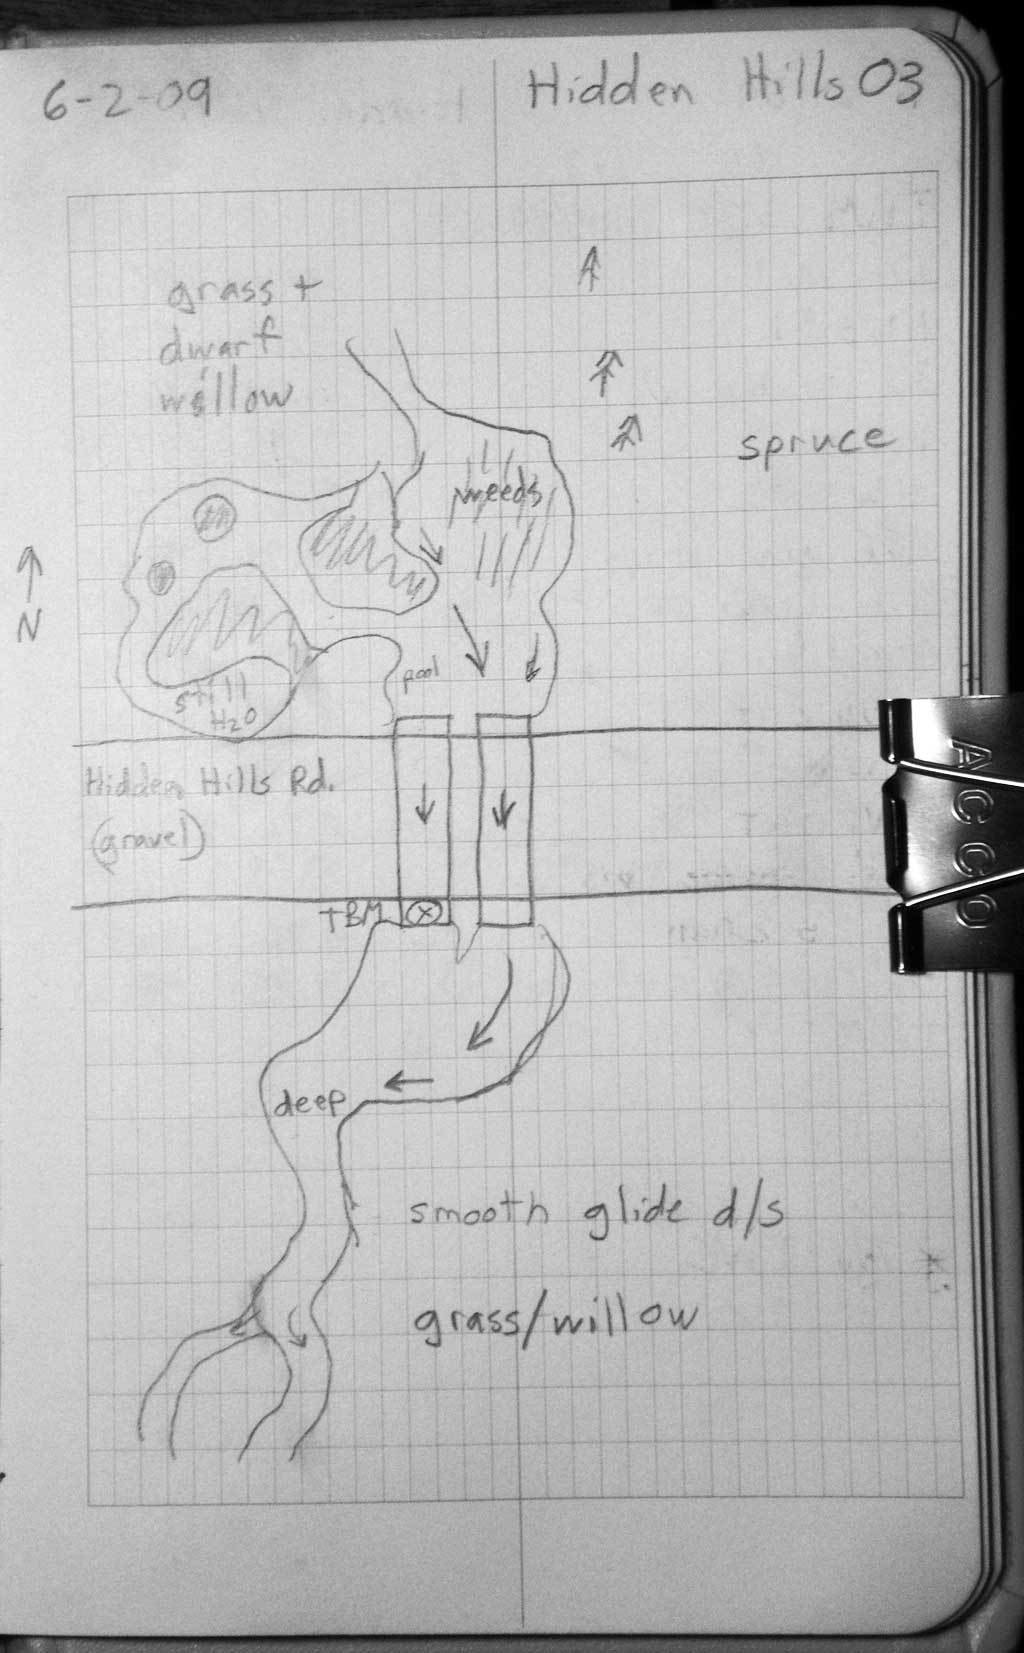 6-2-09
Hidden Hills 03
grass +
dwarf
willow
spruce
weeds
N
pool
still
H2O
Hidden Hills Rd.
(gravel)
TBM
deep
smooth glide d/s
grass/willow
ACCO